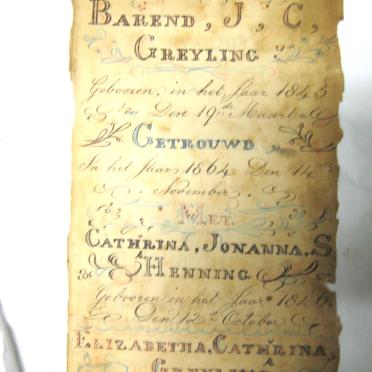 BAREND, J, C,
GREYLING
Gebooren in het Jaar 1845
Den 19de Maart
GETROUWD
In het Jaar 1864 Den 14de
November
MET
CATHRINA, JONANNA, S
HENNING
Gebooren in het Jaar 1846
Den 12de October
ELIZABETHA, CATHRINA,